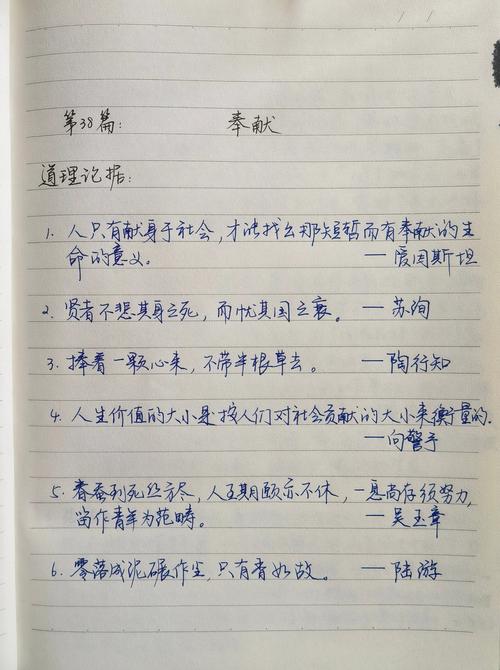 第38篇: 奉献
道理论据:
1. 人只有献身于社会,才能找出那短暂而有奉献的生
命的意义。 —爱因斯坦
2. 贤者不悲其身之死,而忧其国之衰。 —苏洵
3. 捧着一颗心来,不带半根草去。 —陶行知
4. 人生价值的大小是按人们对社会贡献的大小来衡量的.
—向警予
5. 春蚕到死丝方尽,人至期颐亦不休,一息尚存须努力,
留作青年为范畴。 —吴玉章
6. 零落成泥碾作尘,只有香如故。 —陆游